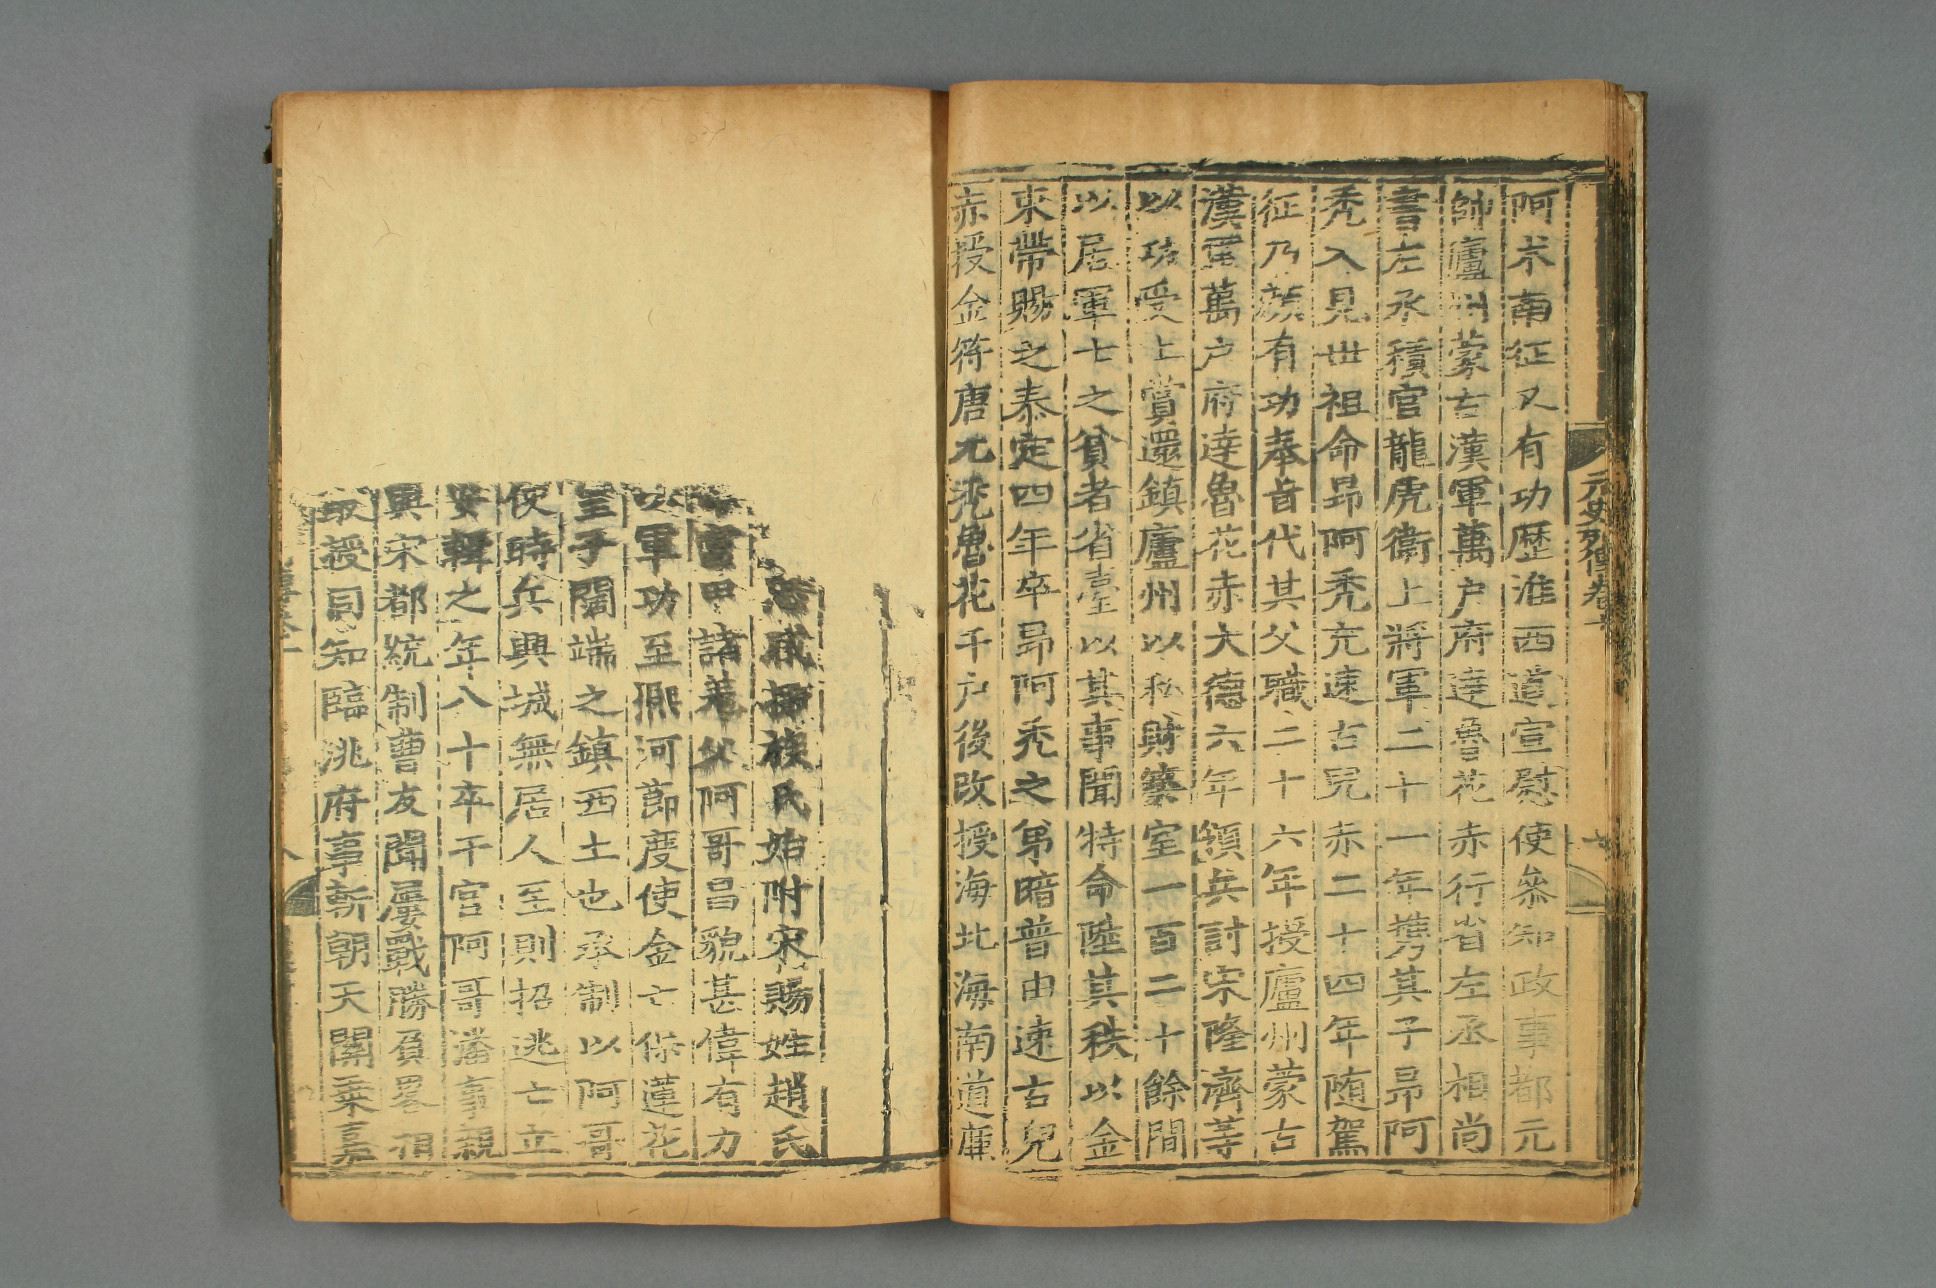 阿朮南征又有功歷淮西道宣慰使叅知政事都元
帥廬州蒙古漢軍萬户府達魯花赤行省左丞相尚
書左丞積官龍虎衛上將軍二十一年擕其子昂阿
禿入見世祖命昂阿禿充速古兒赤二十四年随駕
征乃顔有功奉旨代其父職二十六年授廬州蒙古
漢軍萬户府達魯花赤大德六年領兵討宋隆濟等
以功受上賞還鎮廬州以私財築室一百二十餘間
以居軍士之貧者省臺以其事聞特命陞其秩以金
束帶賜之泰定四年卒昂阿禿之弟暗普由速古兒
赤授金符唐兀禿魯花千户後改授海北海南道廉
元史列傳卷十
十
按族氏始附宋賜姓趙氏
富甲諸羗父阿哥昌貌甚偉有力
以軍功至熙河節度使金亡保蓮花
皇子闊端之鎮西土也承制以阿哥
使時兵興城無居人至則招逃亡立
安輯之年八十卒于官阿哥潘事親
與宋都統制曹友聞屢戰勝負畧相
敗授同知臨洮府事斬朝天關乗嘉
八